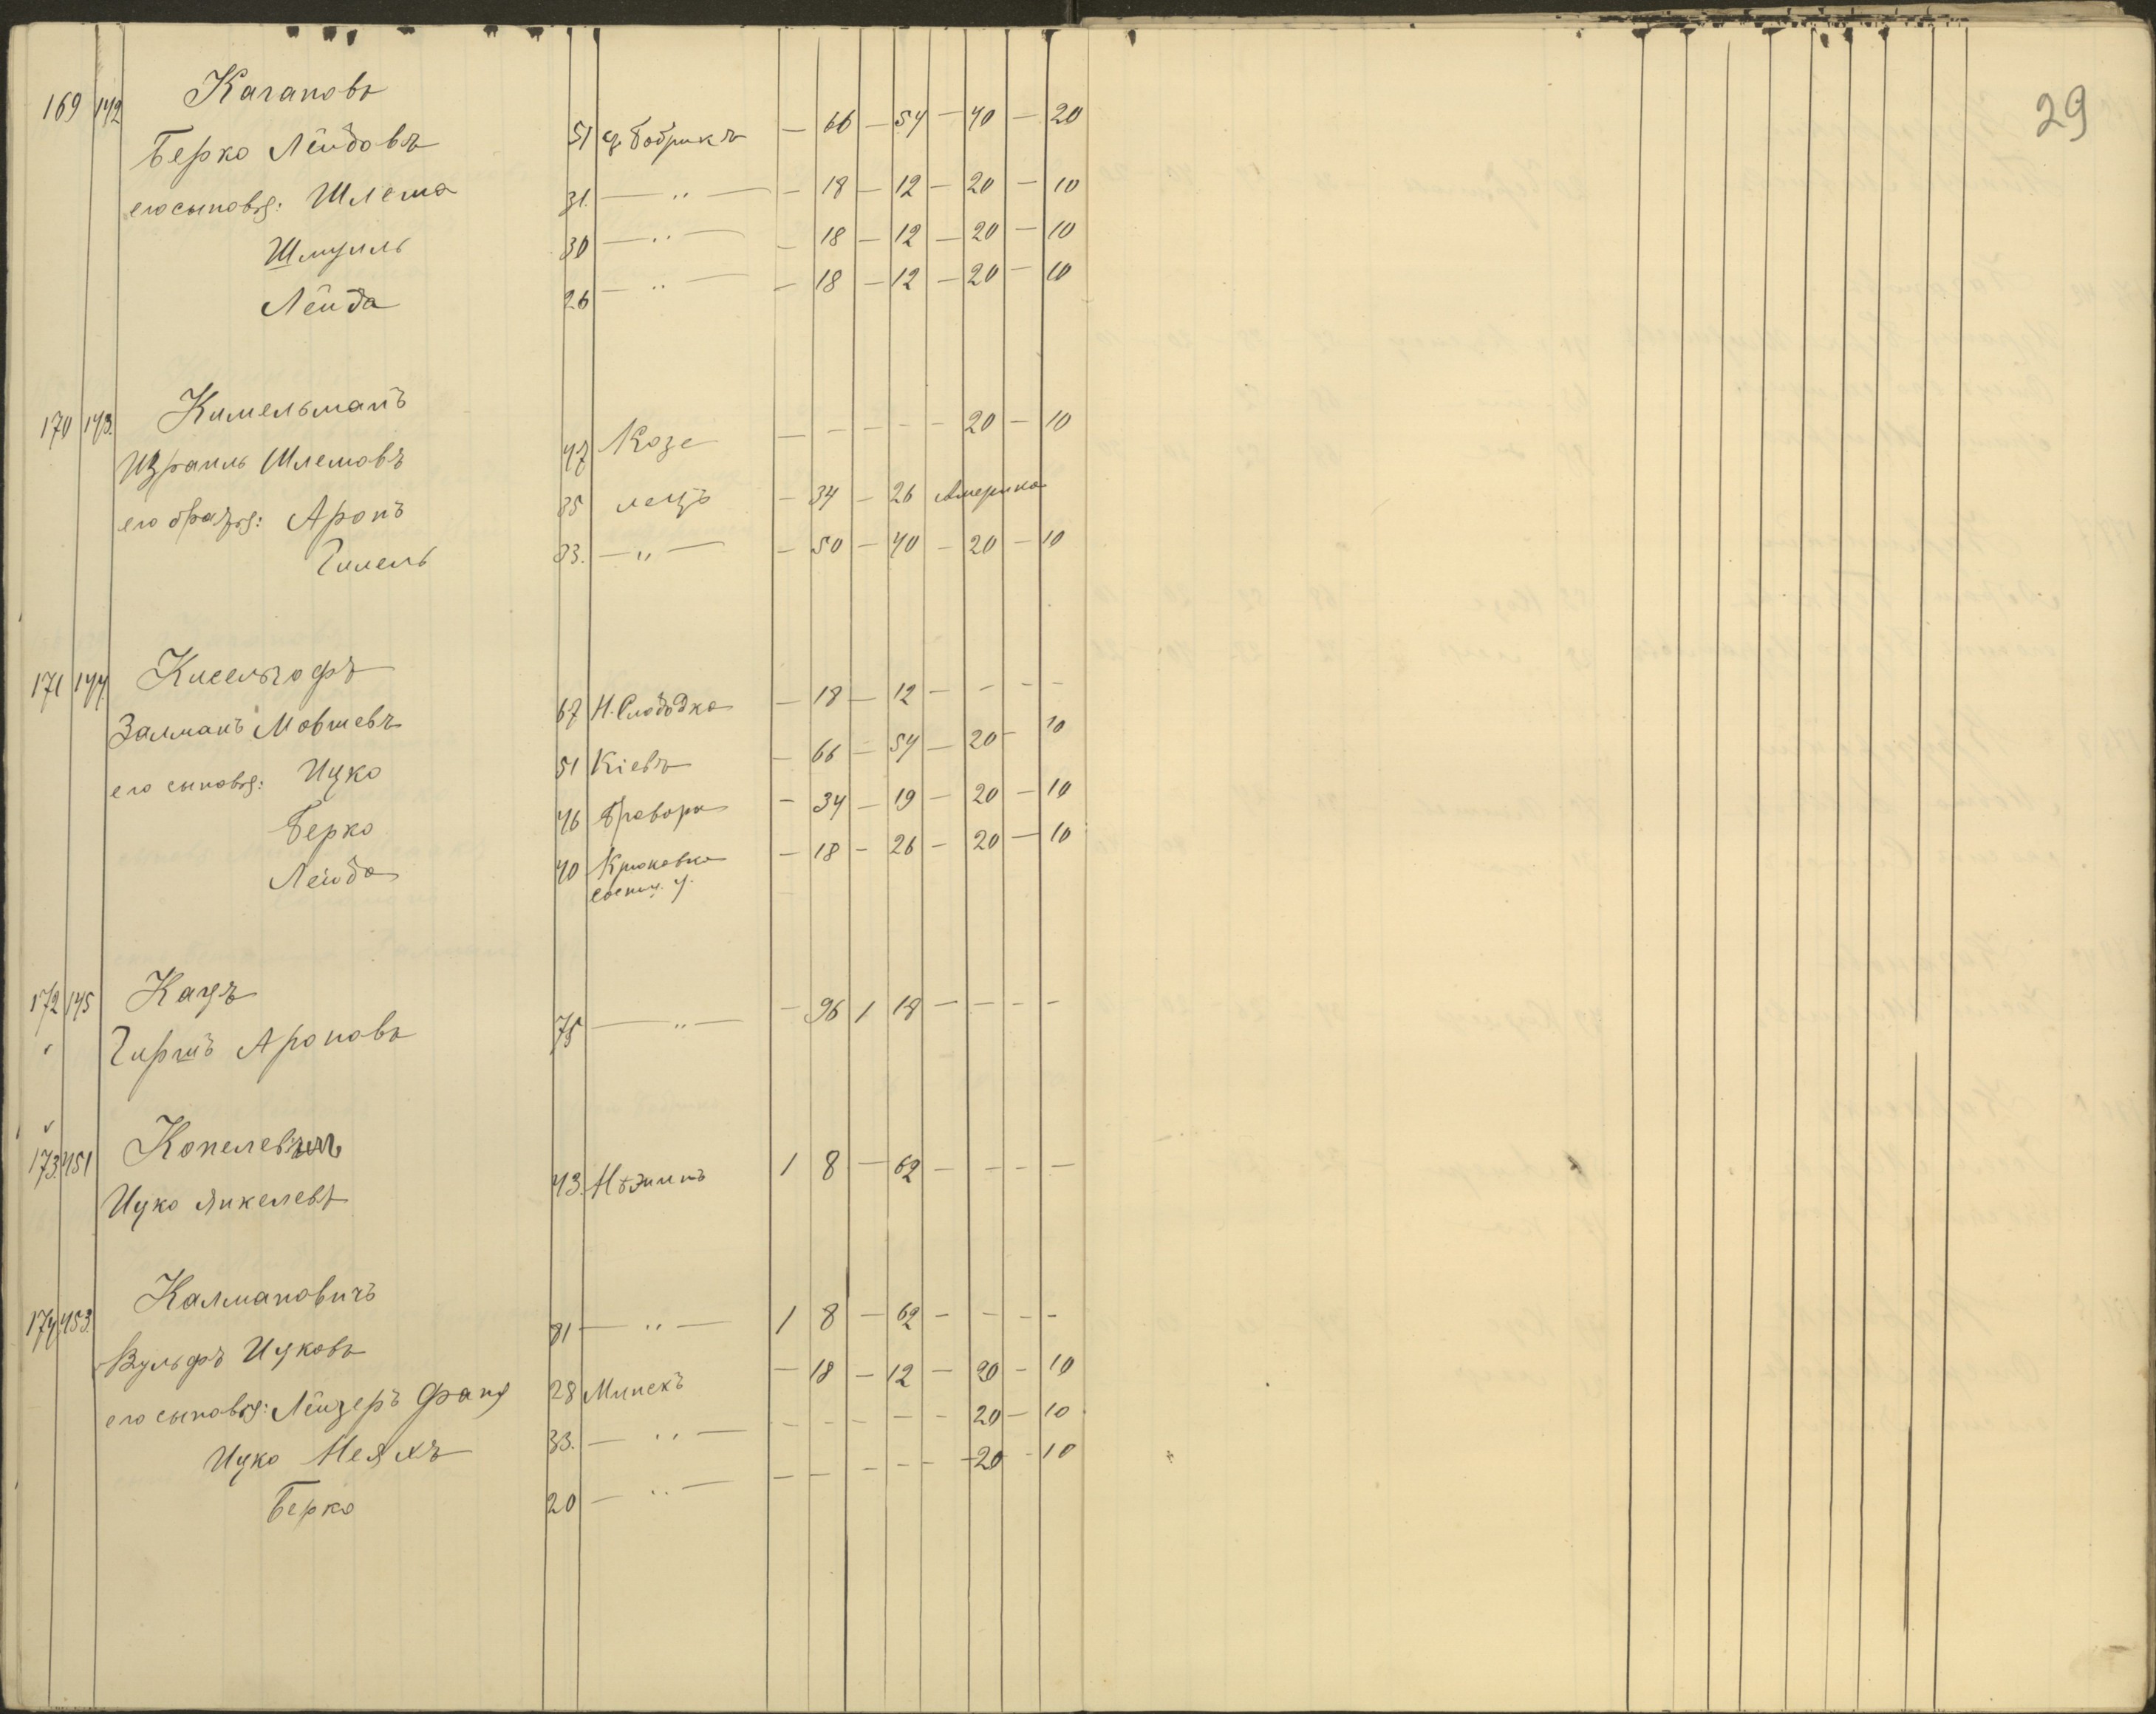 29
169 142 Кагановъ
Берко Лейбовъ 51 с. Бобрикъ — 66 — 54 — 40 — 20
его сыновья: Шлема 31. — " — — 18 — 12 — 20 — 10
Шмуиль 30 — " — — 18 — 12 — 20 — 10
Лейба 26 — " — — 18 — 12 — 20 — 10
170 143. Кимельманъ
Израиль Шлемовъ 47 Козе — — — — — 20 — 10
его братья: Аронъ 35 лецъ — 34 — 26 Америка
Гилель 33. — " — — 50 — 40 — 20 — 10
171 144 Кисельгофъ
Залманъ Мовшевъ 67 Н. Слободка — 18 — 12 — — — —
его сыновья: Ицко 51 Кіевъ — 66 — 54 — 20 — 10
Берко 46 Бровары — 34 — 19 — 20 — 10
Лейба 40 Крюковка — 18 — 26 — 20 — 10
у.
172 145 Кацъ
Гиршъ Ароновъ 75 — " — — 96 1 18 — — — —
173. 451 Копелевичъ
Ицко Янкелевъ 43. Нѣжинъ 1 8 — 62 — — — —
174 453. Калмановичъ
Вульфъ Ицковъ 81 — " — 1 8 — 62 — — — —
его сыновья: Лейзеръ 28 Минскъ — 18 — 12 — 20 — 10
Ицко 33. — " — — — — — — 20 — 10
Берко 20 — " — — — — — — 20 — 10